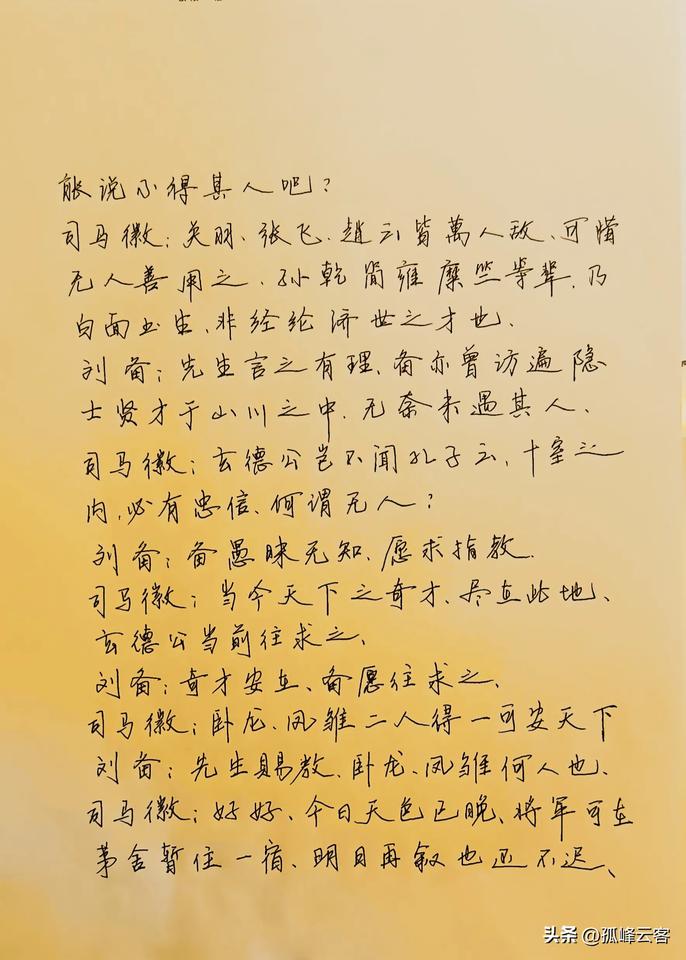 能说不得其人吧？
司马徽：关羽、张飞、趙云皆萬人敌、可惜
无人善用之、孙乾简雍糜竺等辈、乃
白面书生、非经纶济世之才也、
刘备：先生言之有理、备亦曾访遍隐
士贤才于山川之中、无奈未遇其人、
司马徽：玄德公岂不闻孔子云、十室之
内、必有忠信、何谓无人？
刘备：备愚昧无知、愿求指教、
司马徽：当今天下之奇才、尽在此地、
玄德公当前往求之、
刘备：奇才安在、备愿往求之、
司马徽：卧龙、凤雏二人得一可安天下
刘备：先生賜教、卧龙、凤雏何人也、
司马徽：好好、今日天色已晚、将军可在
茅舍暂住一宿、明日再叙也还不迟、
头条 @孤峰云客